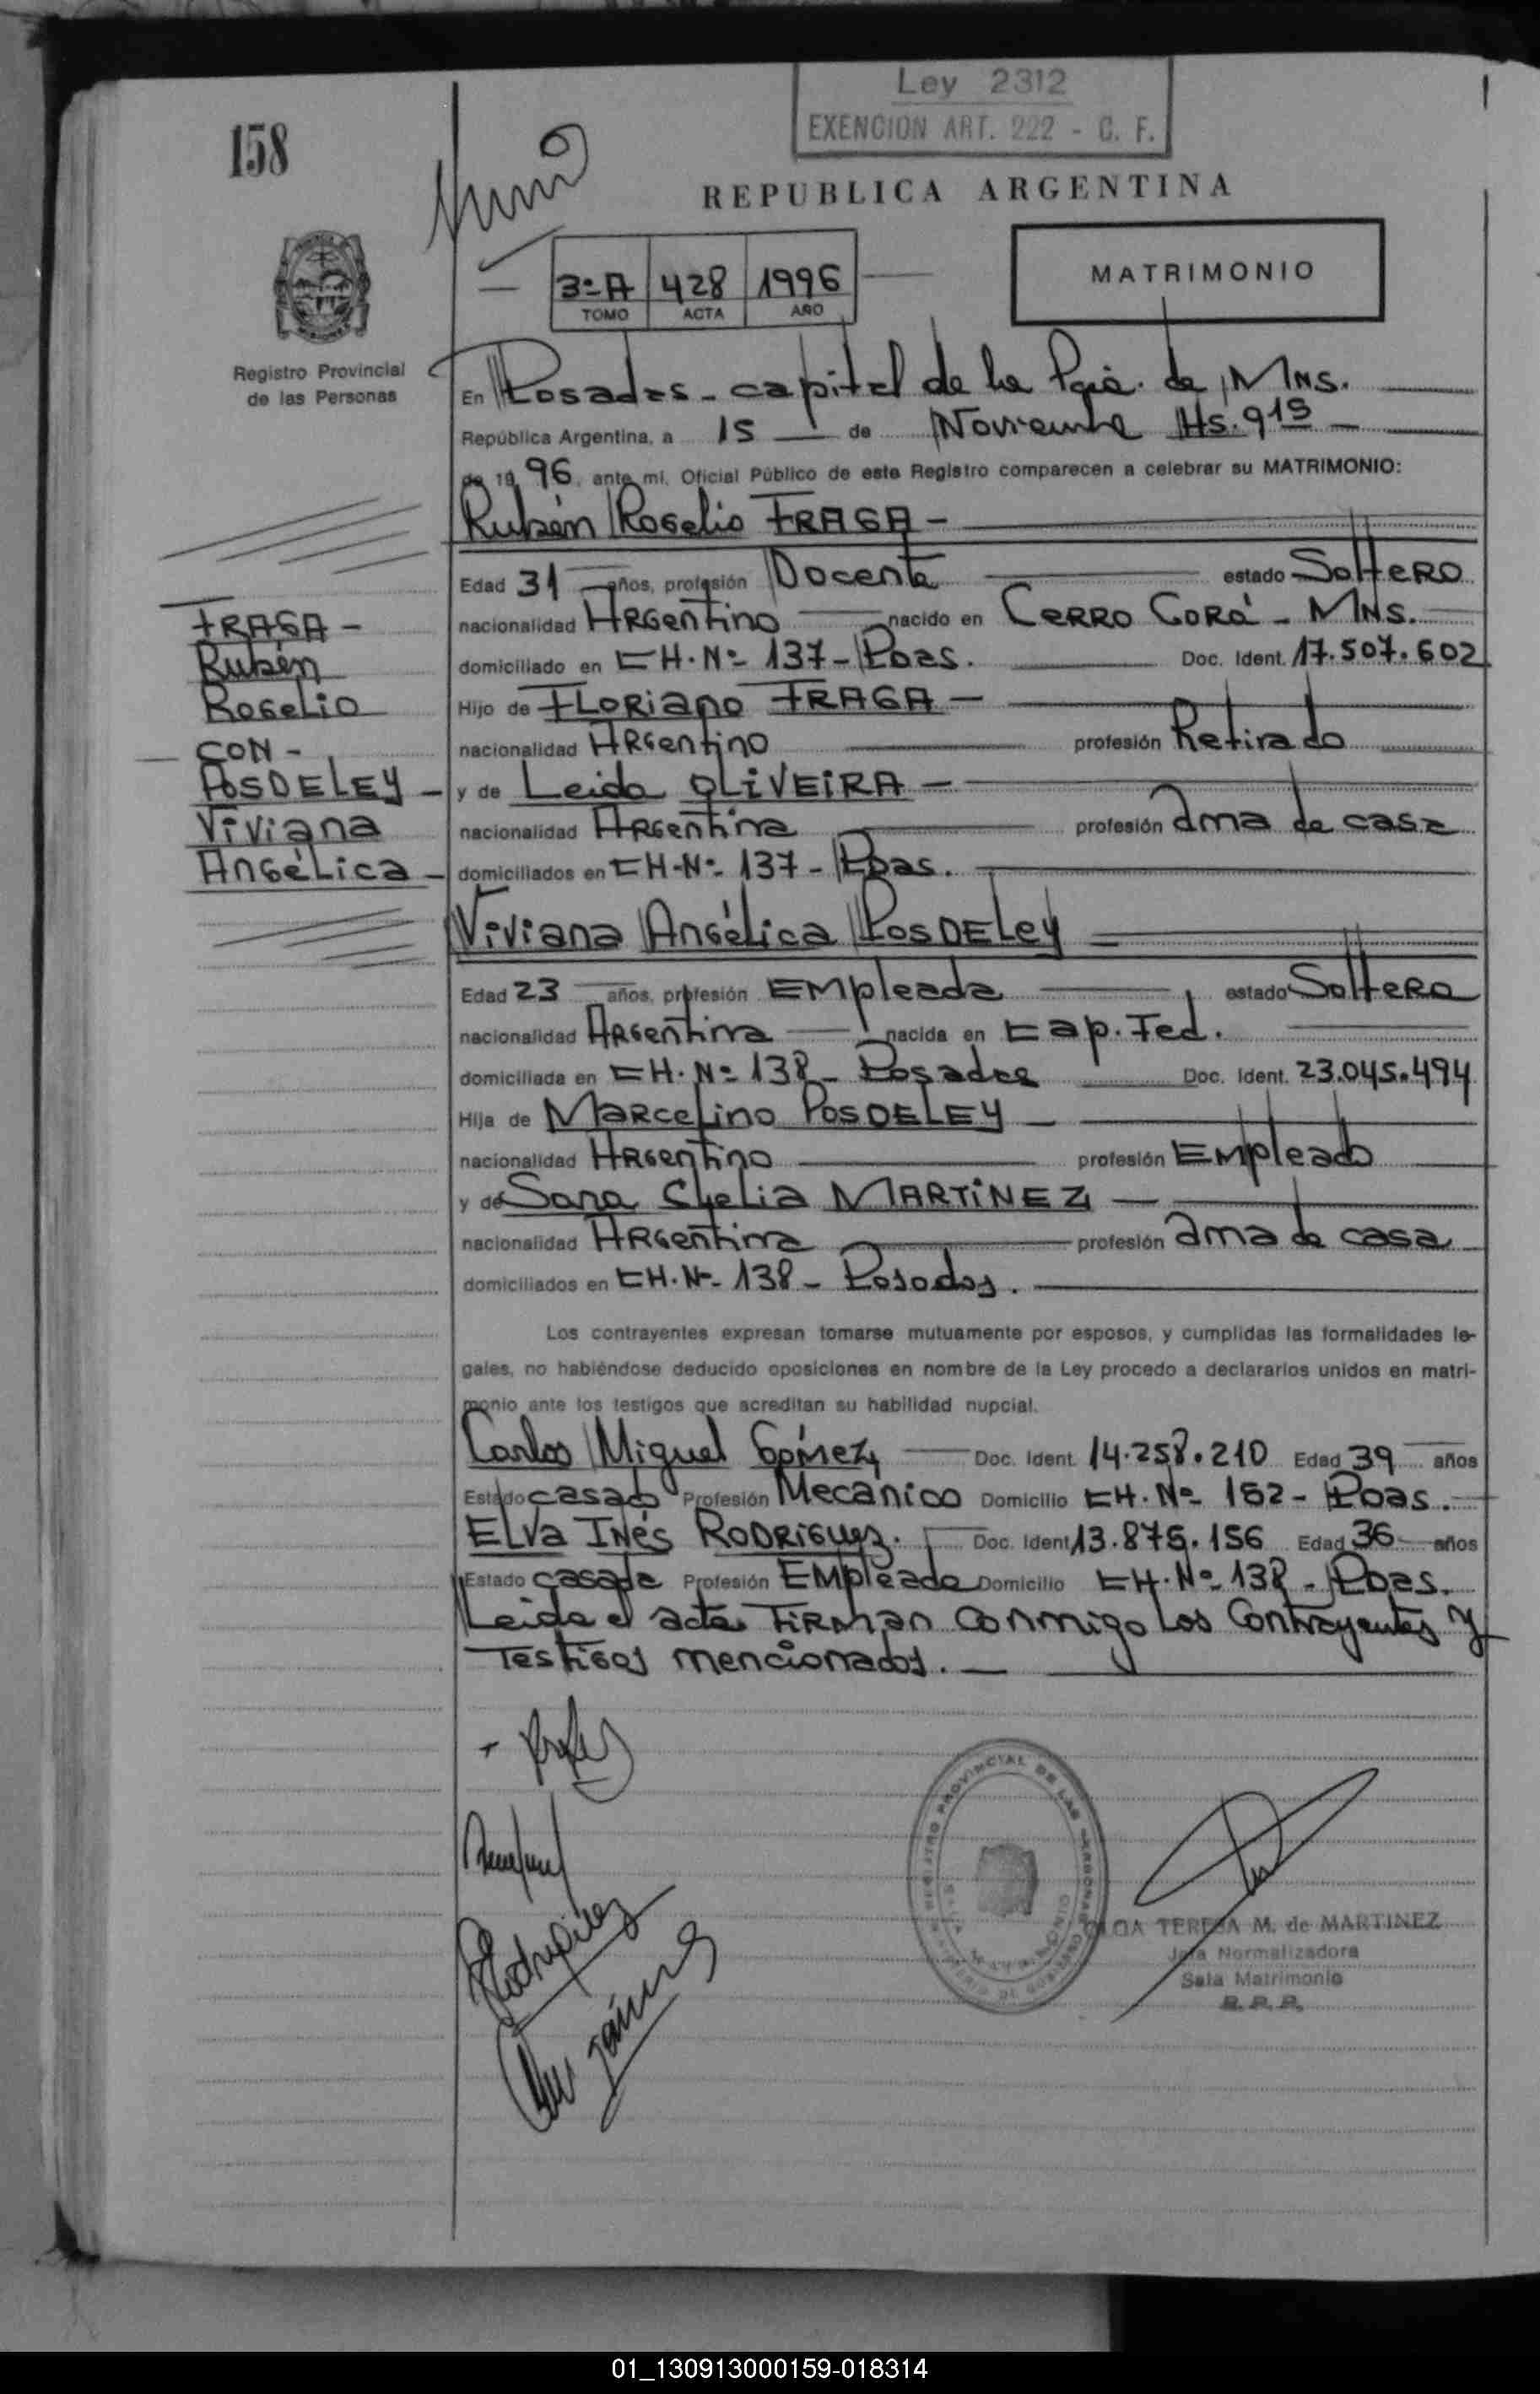 Ley 2312
EXENCION ART. 222 - C. F.
158
REPUBLICA ARGENTINA
3º A 428 1996
TOMO ACTA AÑO
MATRIMONIO
Registro Provincial
de las Personas
En Posadas - capital de la Pcia. de Mns.
República Argentina, a 15 de Noviembre Hs. 9 15
de 1996, ante mi, Oficial Público de este Registro comparecen a celebrar su MATRIMONIO:
Rubén Rogelio FRAGA -
Edad 31 años, profesión Docente estado Soltero
nacionalidad Argentino nacido en Cerro Corá - Mns.
domiciliado en CH. Nº 137 - Pdas. Doc. Ident. 17.507.602
Hijo de Floriano FRAGA -
nacionalidad Argentino profesión Retirado
y de Leida OLIVEIRA -
nacionalidad Argentina profesión ama de casa
domiciliados en CH-Nº 137 - Pdas.
FRAGA -
Rubén
Rogelio
CON -
POSDELEY -
Viviana
Angélica -
Viviana Angélica POSDELEY
Edad 23 años, profesión Empleada estado Soltera
nacionalidad Argentina nacida en Cap. Fed.
domiciliada en CH. Nº 138 - Posadas Doc. Ident. 23.045.494
Hija de Marcelino POSDELEY -
nacionalidad Argentino profesión Empleado
y de Sara MARTINEZ -
nacionalidad Argentina profesión ama de casa
domiciliados en CH. Nº 138 - Posadas.
Los contrayentes expresan tomarse mutuamente por esposos, y cumplidas las formalidades le-
gales, no habiéndose deducido oposiciones en nombre de la Ley procedo a declararlos unidos en matri-
monio ante los testigos que acreditan su habilidad nupcial.
Carlos Miguel Gómez, Doc. Ident. 14.258.210 Edad 39 años
Estado casado Profesión Mecánico Domicilio CH. Nº 152 - Pdas.
Elva Inés RODRIGUEZ. Doc. Ident. 13.875.156 Edad 36 años
Estado casada Profesión Empleada Domicilio CH. Nº 138 - Pdas.
Leida el acta firman conmigo los contrayentes y
testigos mencionados.
Rodriguez
OLGA TERESA M. de MARTINEZ
Jefa Normalizadora
Sala Matrimonio
R. P. P.
01_130913000159-018314